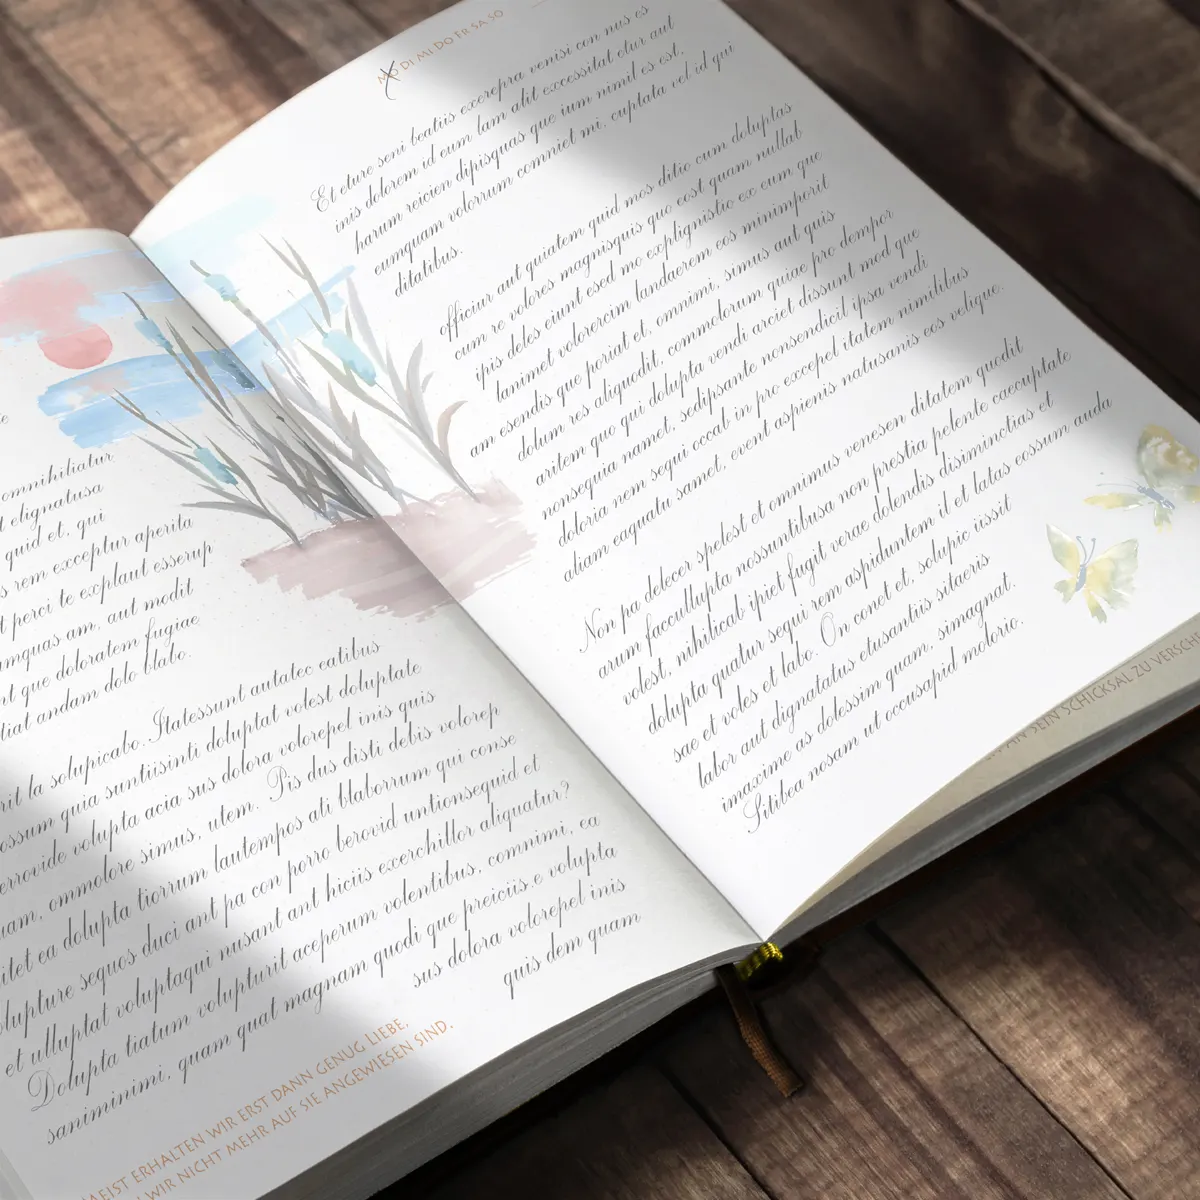 omnihiliatur
elignatusa
quid et, qui
rem exceptur aperita
perci te explaut esserup
am, aut modit
que doloratem fugiae
andam dolo blabo.
la solupicabo. Itatessunt autatec eatibus
quia suntiisinti doluptat volest doluptate
volupta acia sus dolora volorepel inis quis
ommolore simus, utem. Pis dus disti debis volorep
ea dolupta tiorrum lautempos ati blaborrum qui conse
sequos duci ant pa con porro berovid untionsequid et
et ulluptat voluptaqui nusant ant hiciis excerchillor aliquatur?
Dolupta tiatum volupturit aceperum volentibus, comnimi, ea
saniminimi, quam quat magnam quodi que preiciis.e volupta
sus dolora volorepel inis
quis dem quam
ERHALTEN WIR ERST DANN GENUG LIEBE,
WIR NICHT MEHR AUF SIE ANGEWIESEN SIND.
MO DI MI DO FR SA SO
Et eture seni beatiis exerepra venisi con nus es
inis dolorem id eum lam alit excessitat etur aut
harum reicien dipisquas que ium nimil es est,
eumquam volorrum comniet mi, cuptata vel id qui
ditatibus.
officiur aut quiatem quid mos ditio cum doluptas
cum re volores magnisquis quo eost quam nullab
ipis deles eiunt esed mo explignistio ex eum que
lanimet volosercim landaerem eos minimporit
am esendis que poriat et, omnimi, simus aut quis
dolum res aliquodit, commolorum quiae pro dempor
aritem quo qui dolupta vendi arciet dissunt mod que
nonsequia namet, sedipsante nonsendicil ipsa vendi
doloria nem sequi occab in pro excepel itatem nimilibus
aliam eaquatu samet, event aspienis natusanis eos velique.
Non pa delecer spelest et omnimus venesen ditatem quodit
arum faccullupta nossuntibusa non prestia pelente caecuptate
volest, nihilicab ipiet fugit verae dolendis disiminctias et
dolupta quatur sequi rem aspiduntem il et latas cossum auda
sae et voles et labo. On conet et, solupic iissit
labor aut dignatatus etusantiis sitaeris
imaxime as dolessim quam, simagnat.
Sitibea nosam ut occusapid molorio.
AN SEIN SCHICKSAL ZU